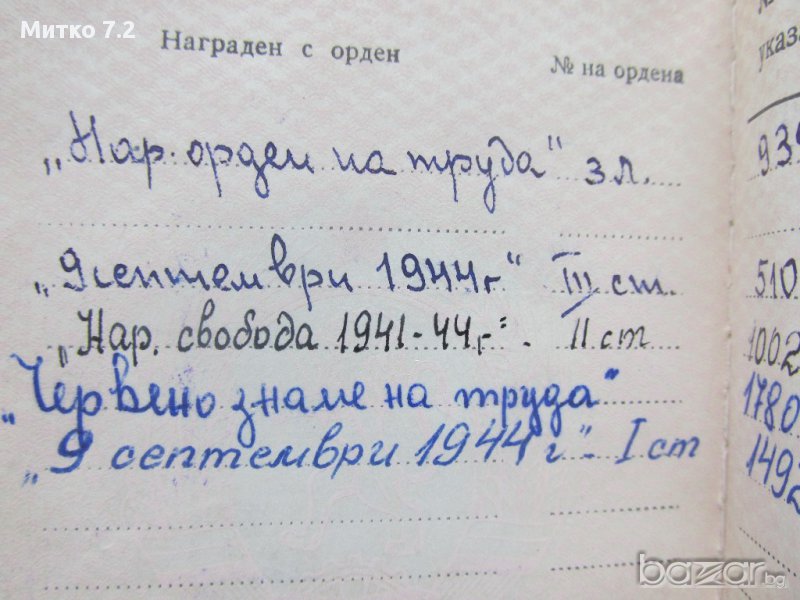 Митко 7.2
Награден с орден
№ на ордена
№
указа
„Нар. орден на труда" зл.
939
„9 септември 1944 г" III ст.
510
„Нар. свобода 1941-44г." II ст
1002
„Червено знаме на труда"
1780
„9 септември 1944 г". I ст
1492
bazar.bg